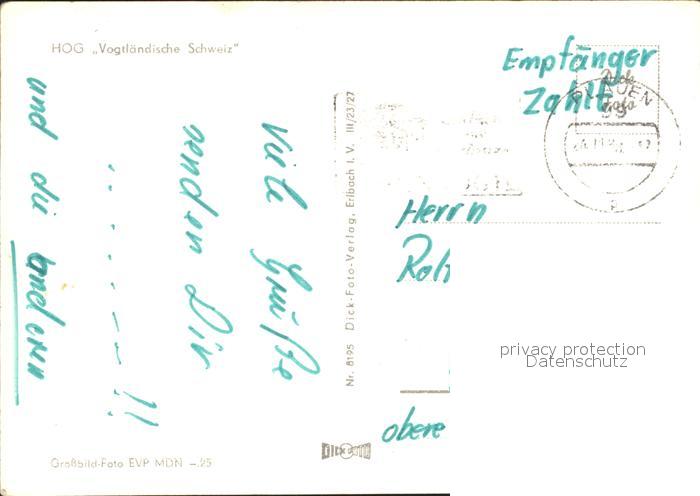 HOG „Vogtländische Schweiz"
Viele Grüße
senden Dir
. . . . . . . – – !!
und die anderen
Großbild-Foto EVP MDN –.25
Nr. 8195 Dick-Foto-Verlag, Erlbach i. V. III/23/27
DICK FOTO
Empfänger
Zahlt
PLAUEN
Herrn
obere
privacy protection
Datenschutz